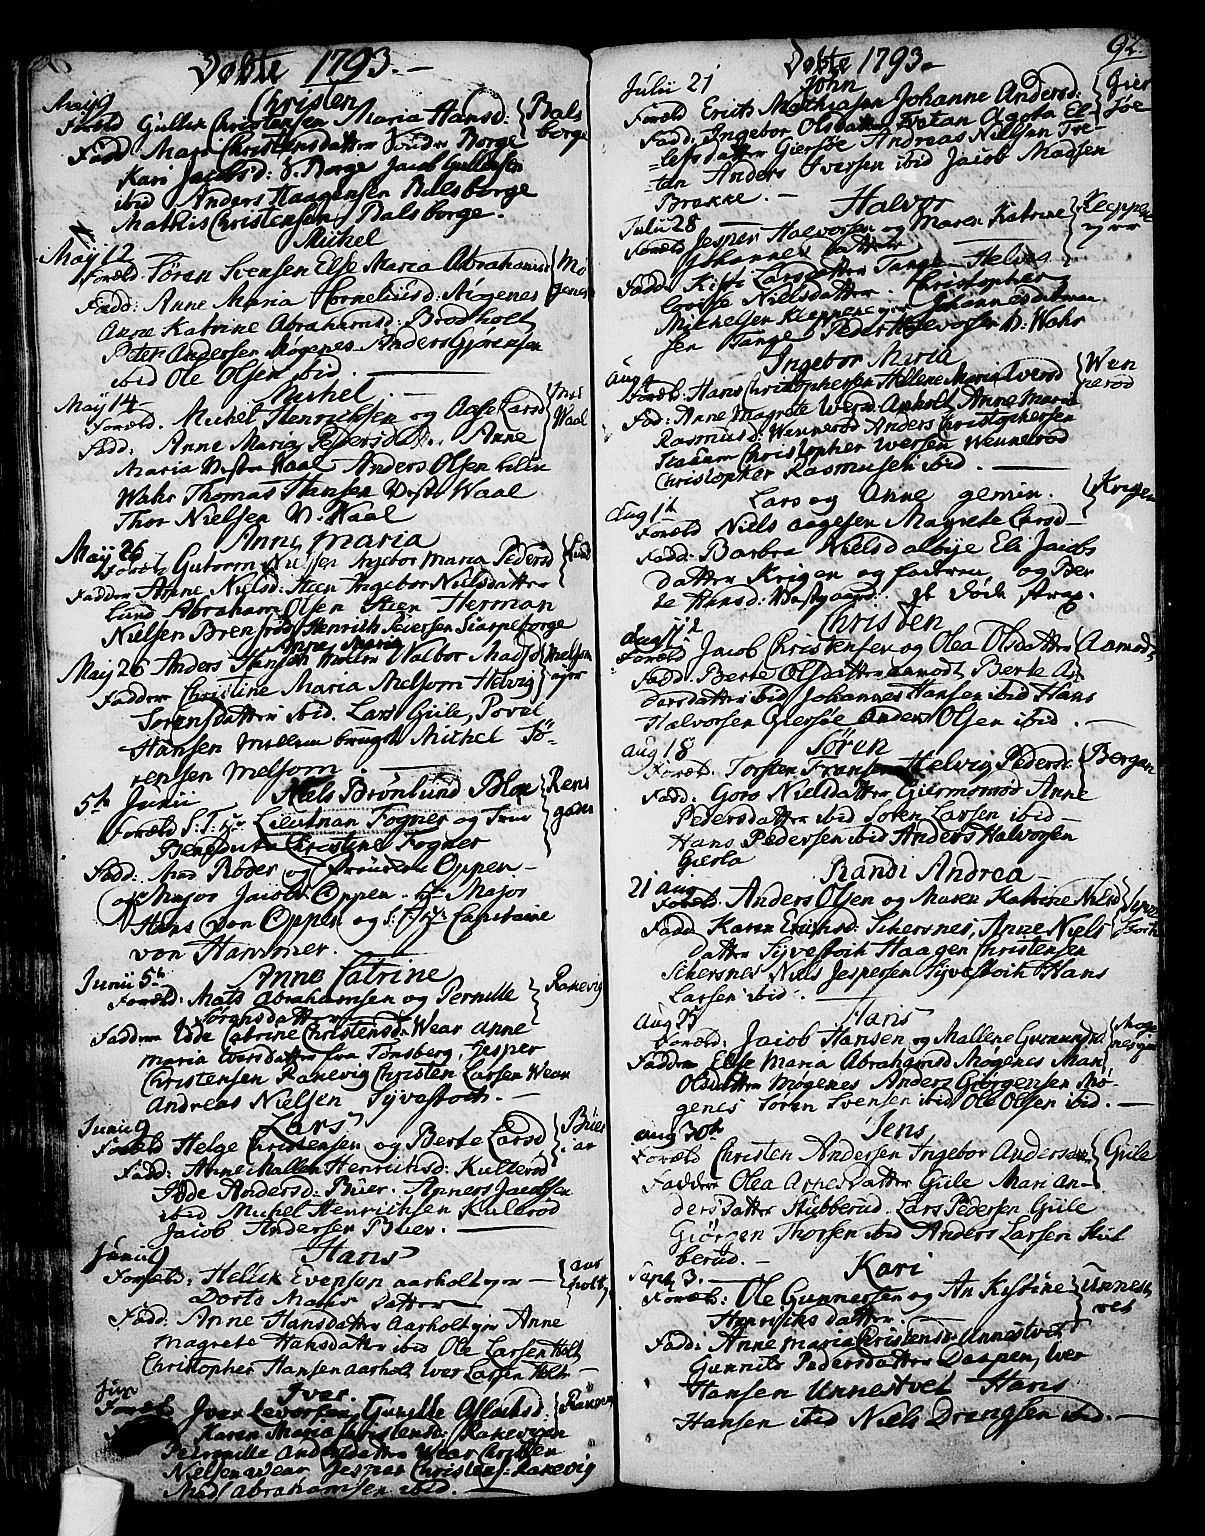 Døbte 1793.
May 9 Christen
Foræld Gullik Christensen Maria Hansd: Bals
Fadd: Maren Christensdatter Søndre Borge borge
Kari Jacobsd: S. Borge Jacob Gullissen
ibid Anders Haagensen Balsborge
Mathis Christensen Balsborge.
Michel
May 12
Foræld Søren Svensen Else Maria Abrahamsd Mo
Fadd: Anne Maria Horneliusd: Møgenes genes
Anne Katrine Abrahamsd: Brodholt
Peter Andersen Møgenes Anders Gjørensen
ibid Ole Olsen ibid.
Michel
May 14
Foræld. Michel Henrichsen og Aase Larsd
Fadd: Anne Maria Pedersdatt. Anne Waal
Maria Vestre Waal Anders Olsen
Wahr Thomas Hansen Vestre Waal
Thor Nielsen V: Waal
Anne Maria
May 26
Foræld Gutorm Nielsen Ingebor Maria Pedersd Lund
Faddere Anne Nielsd: Steen Ingebor Nielsdatter
Lund Abraham Olsen Steen Herman
Nielsen Brenrød Henrich Iversen Skarpeborge
Anne Maria
May 26 Anders Hansen Walbor Madsd Melsom
Faddere Christine Maria Melsom Helvig
Sørensdatter ibid. Lars Gule, Povel
Hansen Mellem Michel Sø-
rensen Melsom.
5th Junii Niels Brønlund Blox Rens
Foræld S. T. Hr Lieutnan Fogner og Frue gade
Benedicta Christine Fogner
Fadd: Mad Røder og Frøuken Oppen
Major Jacob Oppen Hr Major
Hans von Oppen og S. T. Hr Capitaine
von Hammer.
Junii 5th Anne Catrine
Foræld: Mats Abrahamsen og Pernille Rakevig
Sørensdatter
Faddere Edde Catrine Christensd: Wear Anne
Maria Iversdatter fra Tønsberg, Jesper
Christensen Rakevig Christen Larsen Wear
Andreas Nielsen Syvestoch.
Junii 9 Lars
Foræld Helge Christensen og Berte Larsd Buer
Fadd: Anne Mallene Henrichsd: Kulterød
Edde Andersd: Buer. Agners Jacobsen
ibid Michel Henrichsen Kulerød
Jacob Andersen Buer.
Junii 9 Hans
Foræld: Hellik Evensen aarholt aar
Dorte Mathis datter holt
Fadd: Anne Hansdatter Aarholt Anne
Magrete Hansdatter ibid Ole Larsen Holt
Christopher Hansen aarholt Iver Larsen Holt
Jun Iver.
Foræld Iver Leversen Gunilde Allachsd:
Karen Maria Christensd: Rakevigen
Pernille Andersdatter Wear Christen
Nielsen wear Jesper Christens: Rakevig
Mads Abrahamsen ibid.
Døbte 1793. 92.
Julii 21 John
Foræld Erich Mathiasen Johanne Andersd: Gier
Fadd: Ingebor Olsdatter Agata El- søe
lefsdatter Giersøe Andreas Nielsen Tre-
ten Anders Iversen ibid Jacob Madsen
Brekke.
Halvor
Julii 28
Foræld Jesper Halvorsen og Maren Katrine Kleppene
Johannes datter
Fadd: Kisti Larsdatter Tange Helves
Nielsdatter Christopher
Mikkelsen Kleppene Johannes
sen Tange Peder Halvorsen V: Wahr
Ingebor Maria
Aug 4
Foræld: Hans Christophersen Hellene Maria Iversd Wen
Fad: Anne Magrete Iversd: Anholt Anne Maria nerød
Rasmusd: Wennerød Anders Christophersen
Staaum Christopher Iversen Wennerød
Christopher Rasmussen ibid.
Lars og Anne gemin. Krigen
Aug 11
Foræld Niels Aagesen Magrete Larsd
Fadd: Barbra Nielsd Alby Eli Jacobs
datter Krigen og faderen og Ber
te Hansd: Vestgaard. Døde strax.
Christen
Aug 11th
Foræld Jacob Christensen og Olea Olsdatter Aamodt
Fadd: Berte Olsdatter Aamodt Berte An
dersdatter ibid Johannes Hansen ibid Hans
Halvorsen Giersøe Anders Olsen ibid.
Aug 18 Søren
Foræld: Torsten Fransen Helvig Pedersd: Bergan
Fadd: Goro Nielsdatter Giermonrød Anne
Pedersdatter ibid Søren Larsen ibid
Hans Pedersen ibid Anders Halvorsen
Gierla
Randi Andrea
21 Aug
Foræld: Anders Olsen og Maren Katrine Nielsd Syve
Fadd Karen Erichsd: Schersnes, Anne Niels stoch
datter Syvestoch Haagen Christensen
Schersnes Niels Jespersen Syvestoch Hans
Larsen ibid.
Aug 25 Hans
Foræld: Jacob Hansen og Mallene Gunundsd: Møge
Faddere Else Maria Abrahamsd Møgenes Mari
Olsdatter Møgenes Anders Giørgensen Mø-
genes Søren Svensen ibid Ole Olsen ibid.
Aug 30th Jens
Foræld Christen Andersen Ingebor Anders Gule
Faddere Olea Aspersdatter Gule Mari An-
dersdatter Stubberud. Lars Pedersen Gule
Giørgen Thorsen ibid Anders Larsen Stub
berud.
Sept 3. Kari
Foræld: Ole Gunnersen og An Kistine Unnest
Henrichs datter vet
Fadd: Anne Maria Christensd Unnestvet
Gunnild Pedersdatter Daapen, Iver
Hansen Unnestvet Hans
Hansen ibid Niels Drengsen ibid.